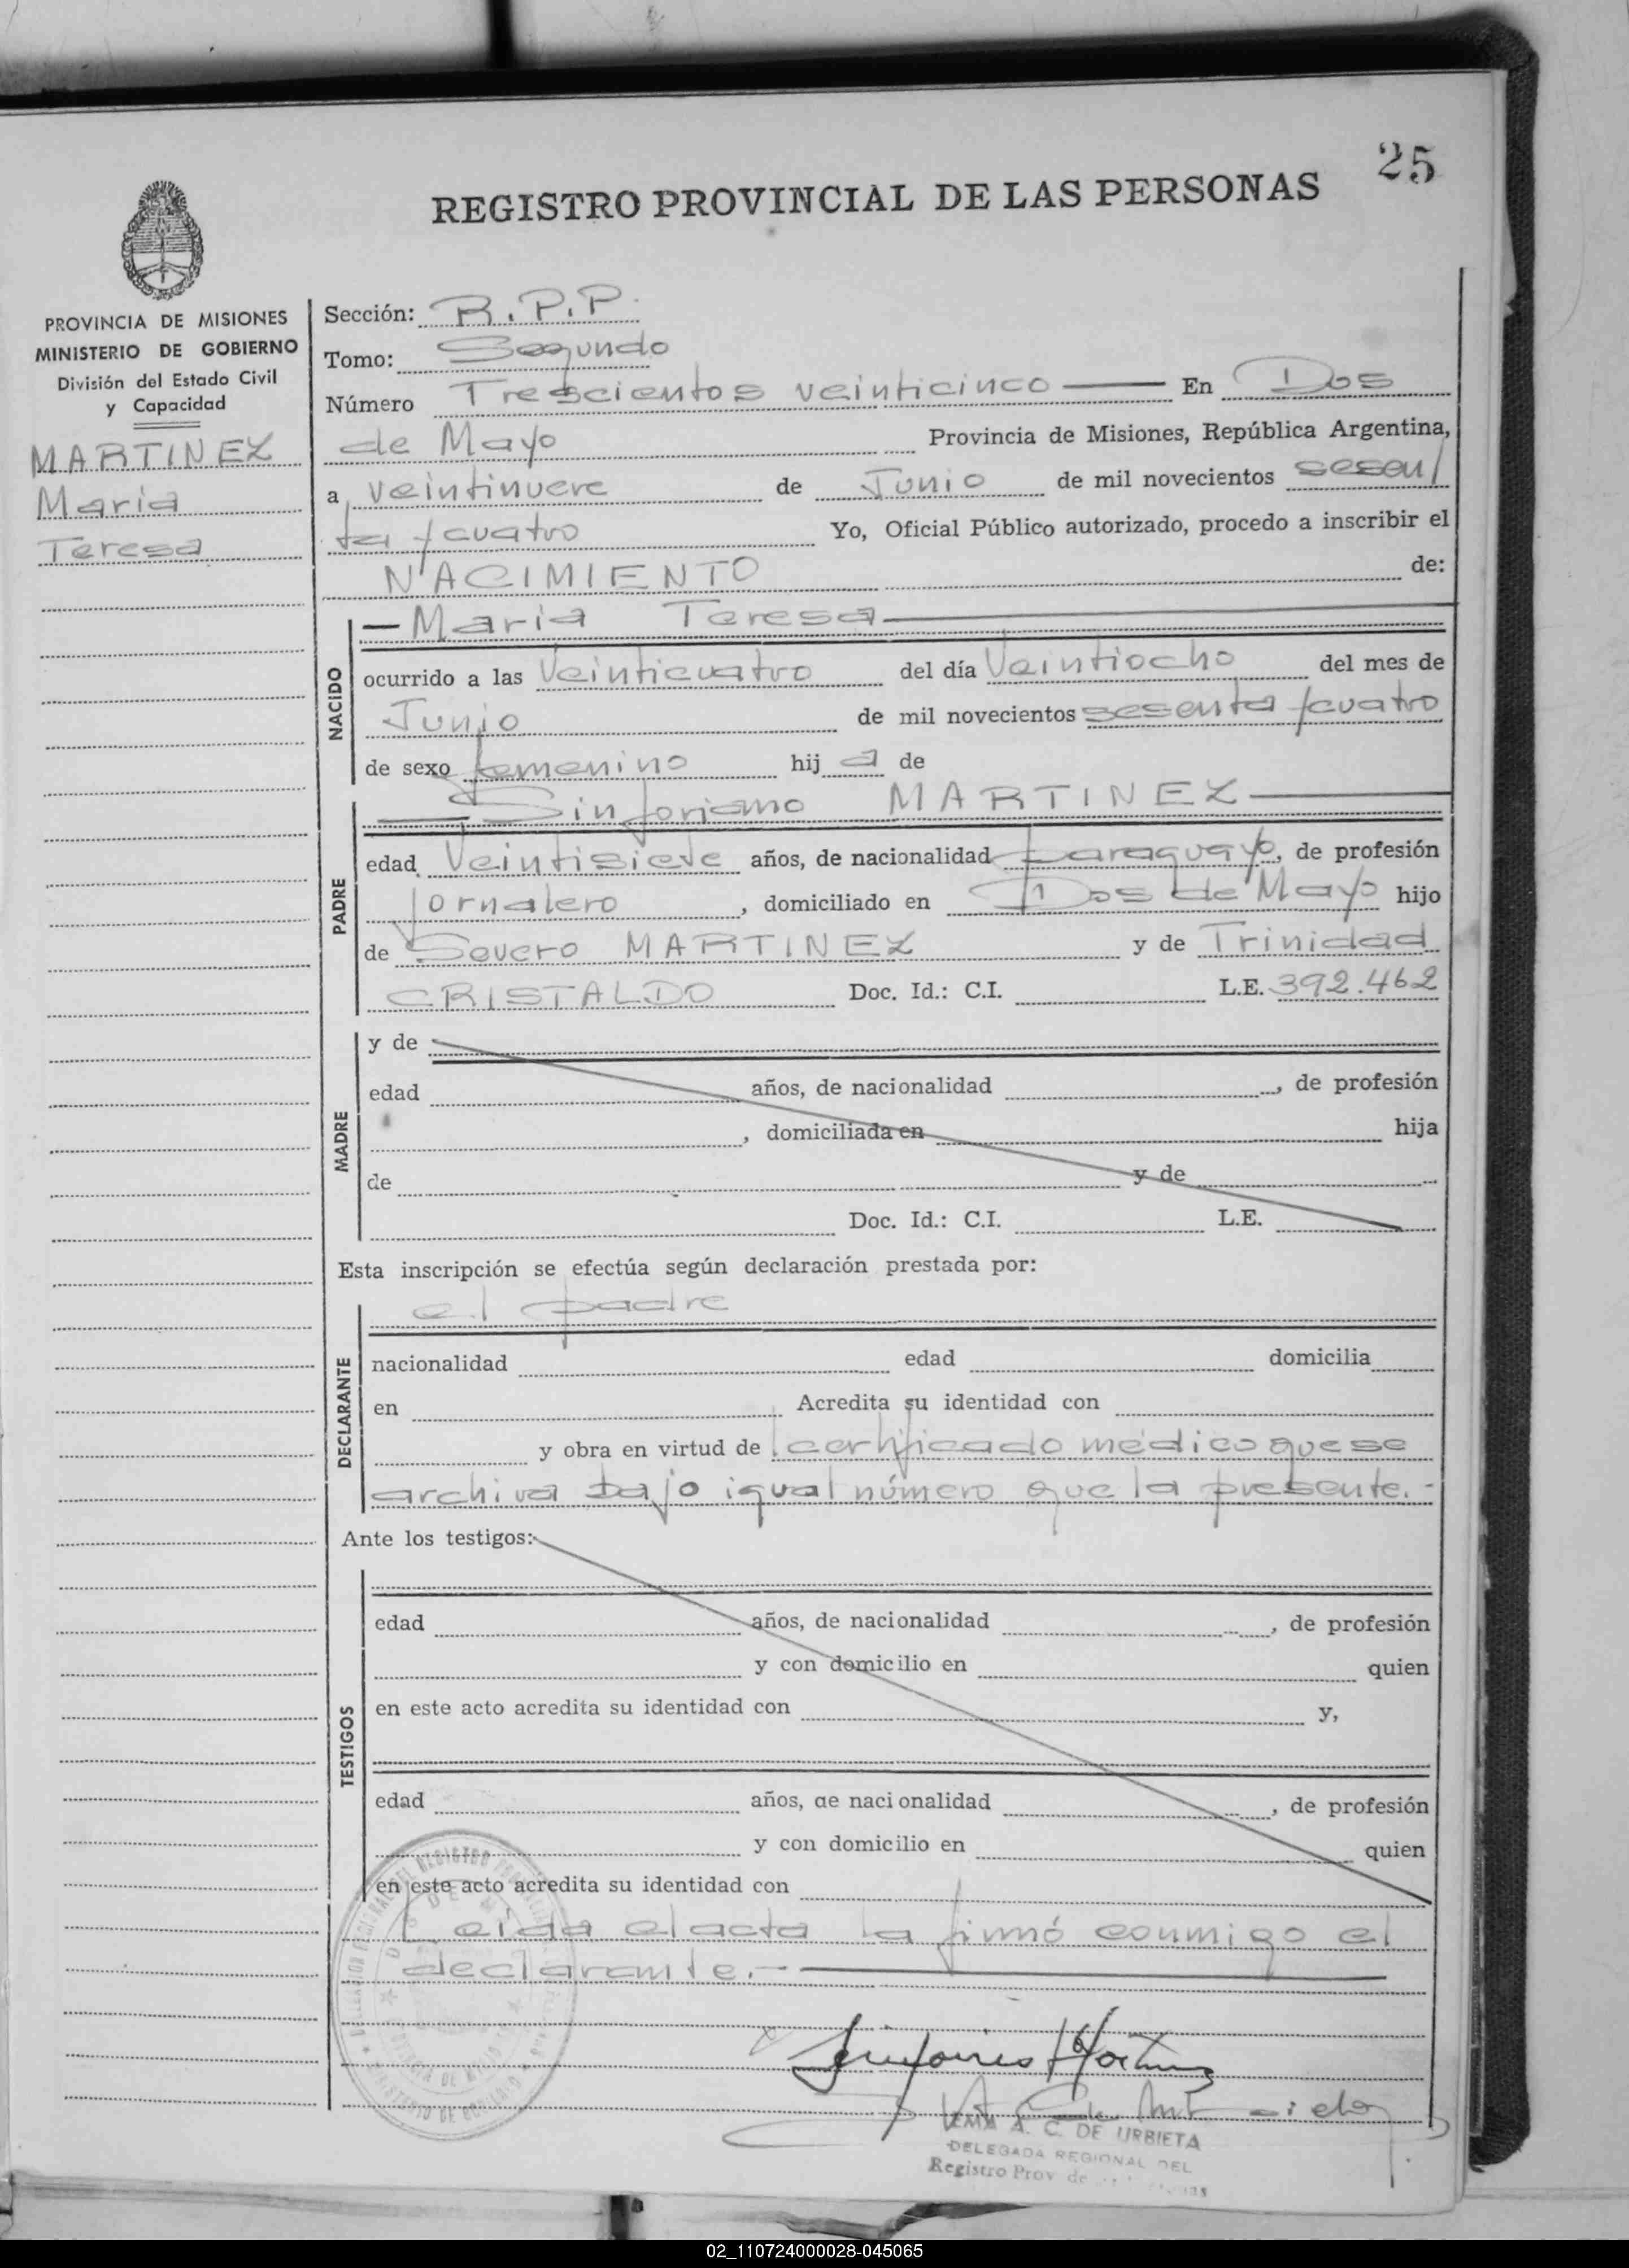 25
REGISTRO PROVINCIAL DE LAS PERSONAS
PROVINCIA DE MISIONES
MINISTERIO DE GOBIERNO
División del Estado Civil
y Capacidad
MARTINEZ
Maria
Teresa
Sección: R.P.P.
Tomo: Segundo
Número Trescientos veinticinco — En Dos
de Mayo Provincia de Misiones, República Argentina,
a veintinueve de Junio de mil novecientos sesen/
ta y cuatro Yo, Oficial Público autorizado, procedo a inscribir el
NACIMIENTO de:
NACIDO
— Maria Teresa —
ocurrido a las Veinticuatro del día Veintiocho del mes de
Junio de mil novecientos sesenta y cuatro
de sexo femenino hij a de
PADRE
— Sinforiano MARTINEZ —
edad Veintisiete años, de nacionalidad paraguayo, de profesión
Jornalero, domiciliado en Dos de Mayo hijo
de Severo MARTINEZ y de Trinidad
CRISTALDO Doc. Id.: C.I. L.E. 392.462
MADRE
y de
edad años, de nacionalidad , de profesión
, domiciliada en hija
de y de
Doc. Id.: C.I. L.E.
Esta inscripción se efectúa según declaración prestada por:
DECLARANTE
el padre
nacionalidad edad domicilia
en Acredita su identidad con
y obra en virtud de certificado médico que se
archiva bajo igual número que la presente.-
Ante los testigos:
TESTIGOS
edad años, de nacionalidad , de profesión
y con domicilio en quien
en este acto acredita su identidad con y,
edad años, de nacionalidad , de profesión
y con domicilio en quien
en este acto acredita su identidad con
Leida el acta la firmó conmigo el
declarante.- —
A. C. DE URBIETA
DELEGADA REGIONAL DEL
Registro Prov de
02_110724000028-045065